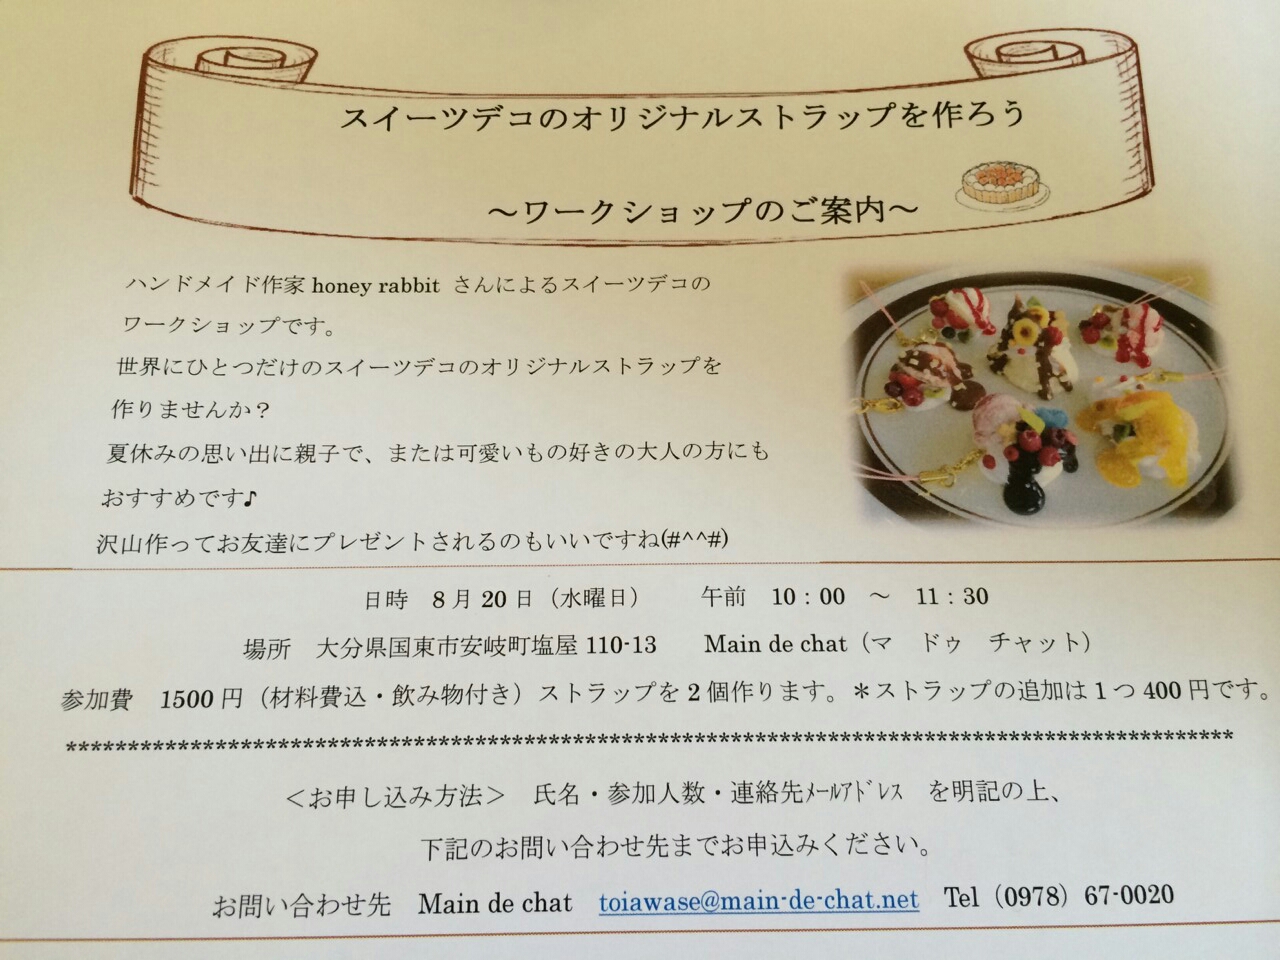 スイーツデコのオリジナルストラップを作ろう
～ワークショップのご案内～
ハンドメイド作家 honey rabbit さんによるスイーツデコの
ワークショップです。
世界にひとつだけのスイーツデコのオリジナルストラップを
作りませんか？
夏休みの思い出に親子で、または可愛いもの好きの大人の方にも
おすすめです♪
沢山作ってお友達にプレゼントされるのもいいですね(#^^#)
日時　8 月 20 日（水曜日）　　午前　10：00　～　11：30
場所　大分県国東市安岐町塩屋 110-13　　Main de chat（マ　ドゥ　チャット）
参加費　1500 円（材料費込・飲み物付き）ストラップを 2 個作ります。＊ストラップの追加は 1 つ 400 円です。
**********************************************************************************************
＜お申し込み方法＞　氏名・参加人数・連絡先ﾒｰﾙｱﾄﾞﾚｽ　を明記の上、
下記のお問い合わせ先までお申込みください。
お問い合わせ先　Main de chat　toiawase@main-de-chat.net　Tel（0978）67-0020